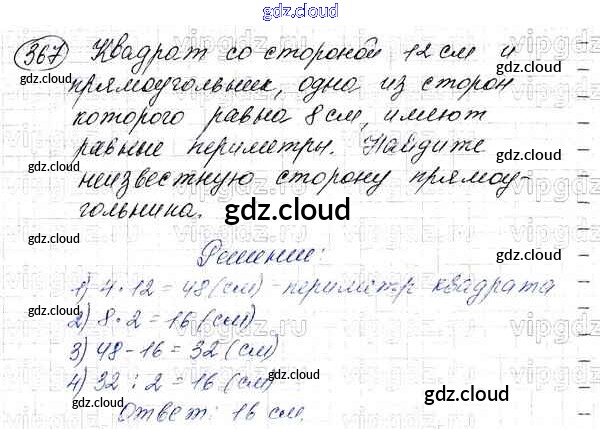 gdz.cloud
367 Квадрат со стороной 12 см и
gdz.cloud gdz.cloud
прямоугольник, одна из сторон
которого равна 8 см, имеют
gdz.cloud gdz.cloud
равные периметры. Найдите
неизвестную сторону прямоу-
гольника.
gdz.cloud
gdz.cloud gdz.cloud
Решение:
1) 4 · 12 = 48 (см) - периметр квадрата
gdz.cloud gdz.cloud
2) 8 · 2 = 16 (см)
3) 48 - 16 = 32 (см)
gdz.cloud gdz.cloud
4) 32 : 2 = 16 (см)
Ответ: 16 см.
gdz.cloud